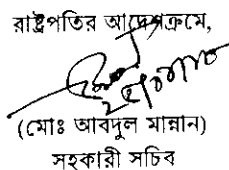 রাষ্ট্রপতির আদেশক্রমে,
(মোঃ আবদুল মান্নান)
সহকারী সচিব